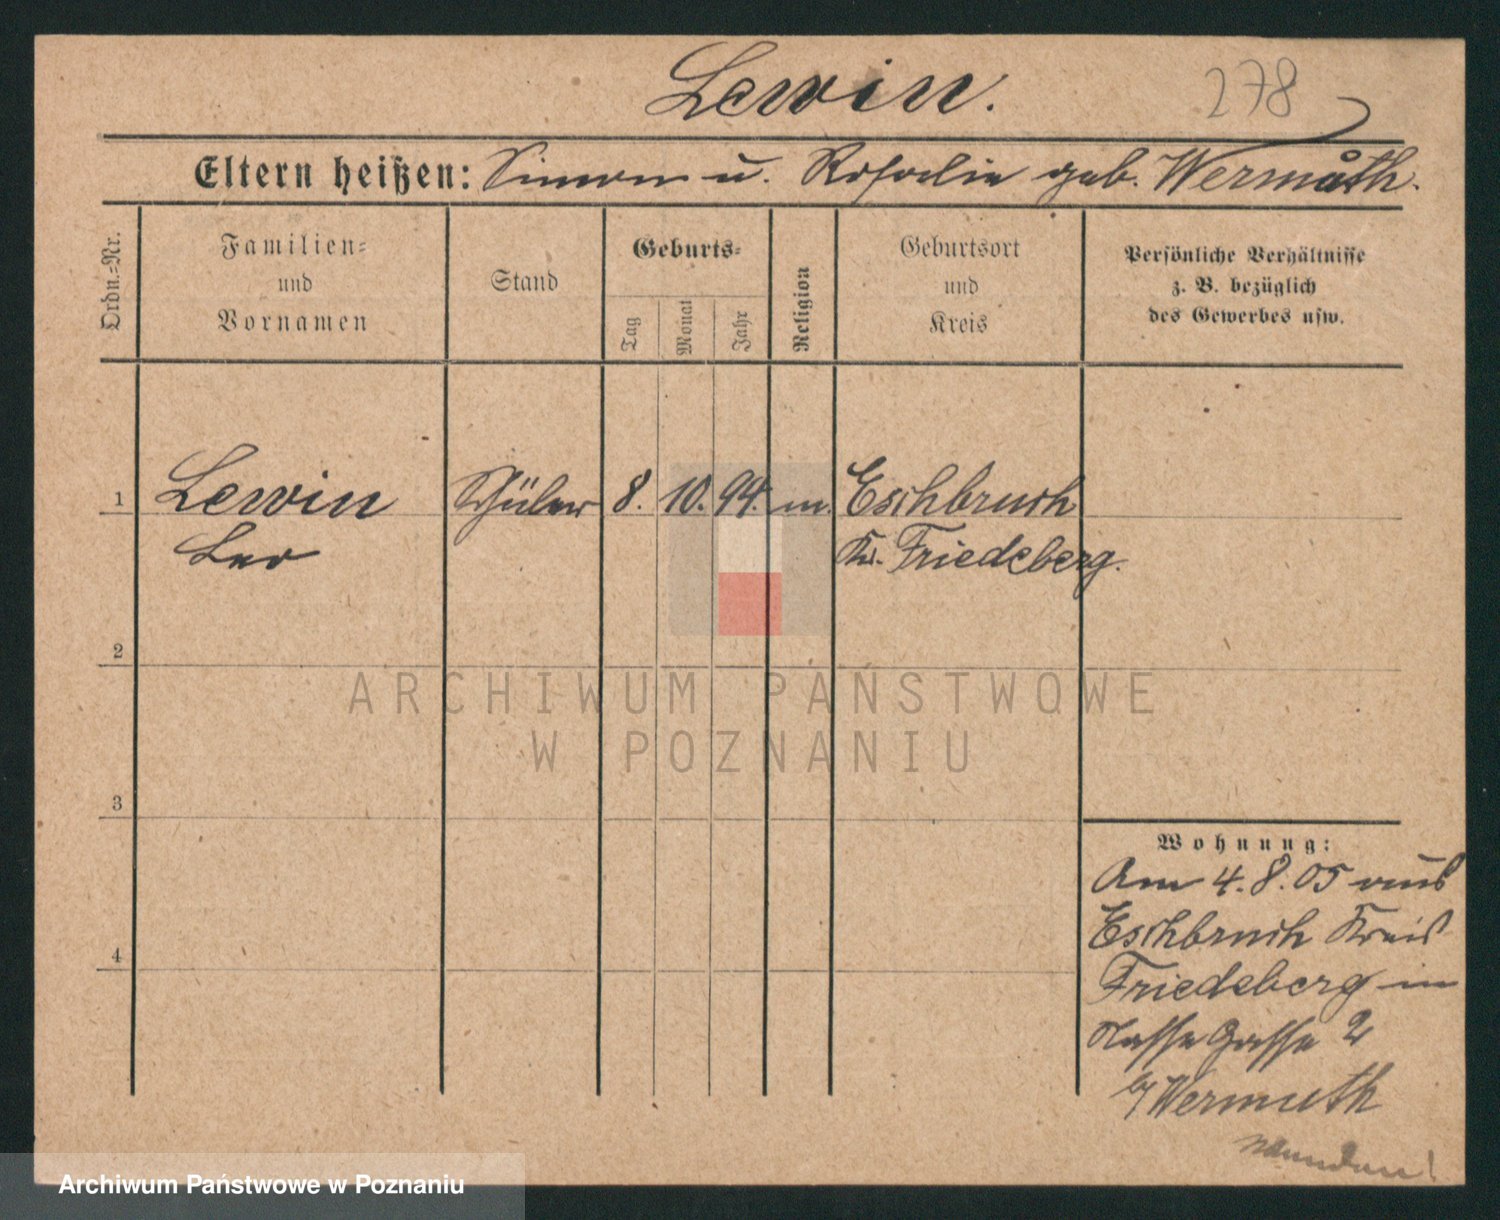 Lewin.
278
Eltern heißen: Simon u. Rosalie geb. Wermuth.
Ordn.-Nr.
Familien-
und
Vornamen
Stand
Geburts-
Tag
Monat
Jahr
Religion
Geburtsort
und
Kreis
Persönliche Verhältnisse
z. B. bezüglich
des Gewerbes usw.
1 Lewin Schüler 8. 10. 94. m. Eschbruch
Leo Kr. Friedeberg.
2
ARCHIWUM PAŃSTWOWE
W POZNANIU
3
Wohnung:
Am 4.8.05 aus
Eschbruch Kreis
4
Friedeberg in
Nasse Gasse 2
b/ Wermuth
Archiwum Państwowe w Poznaniu